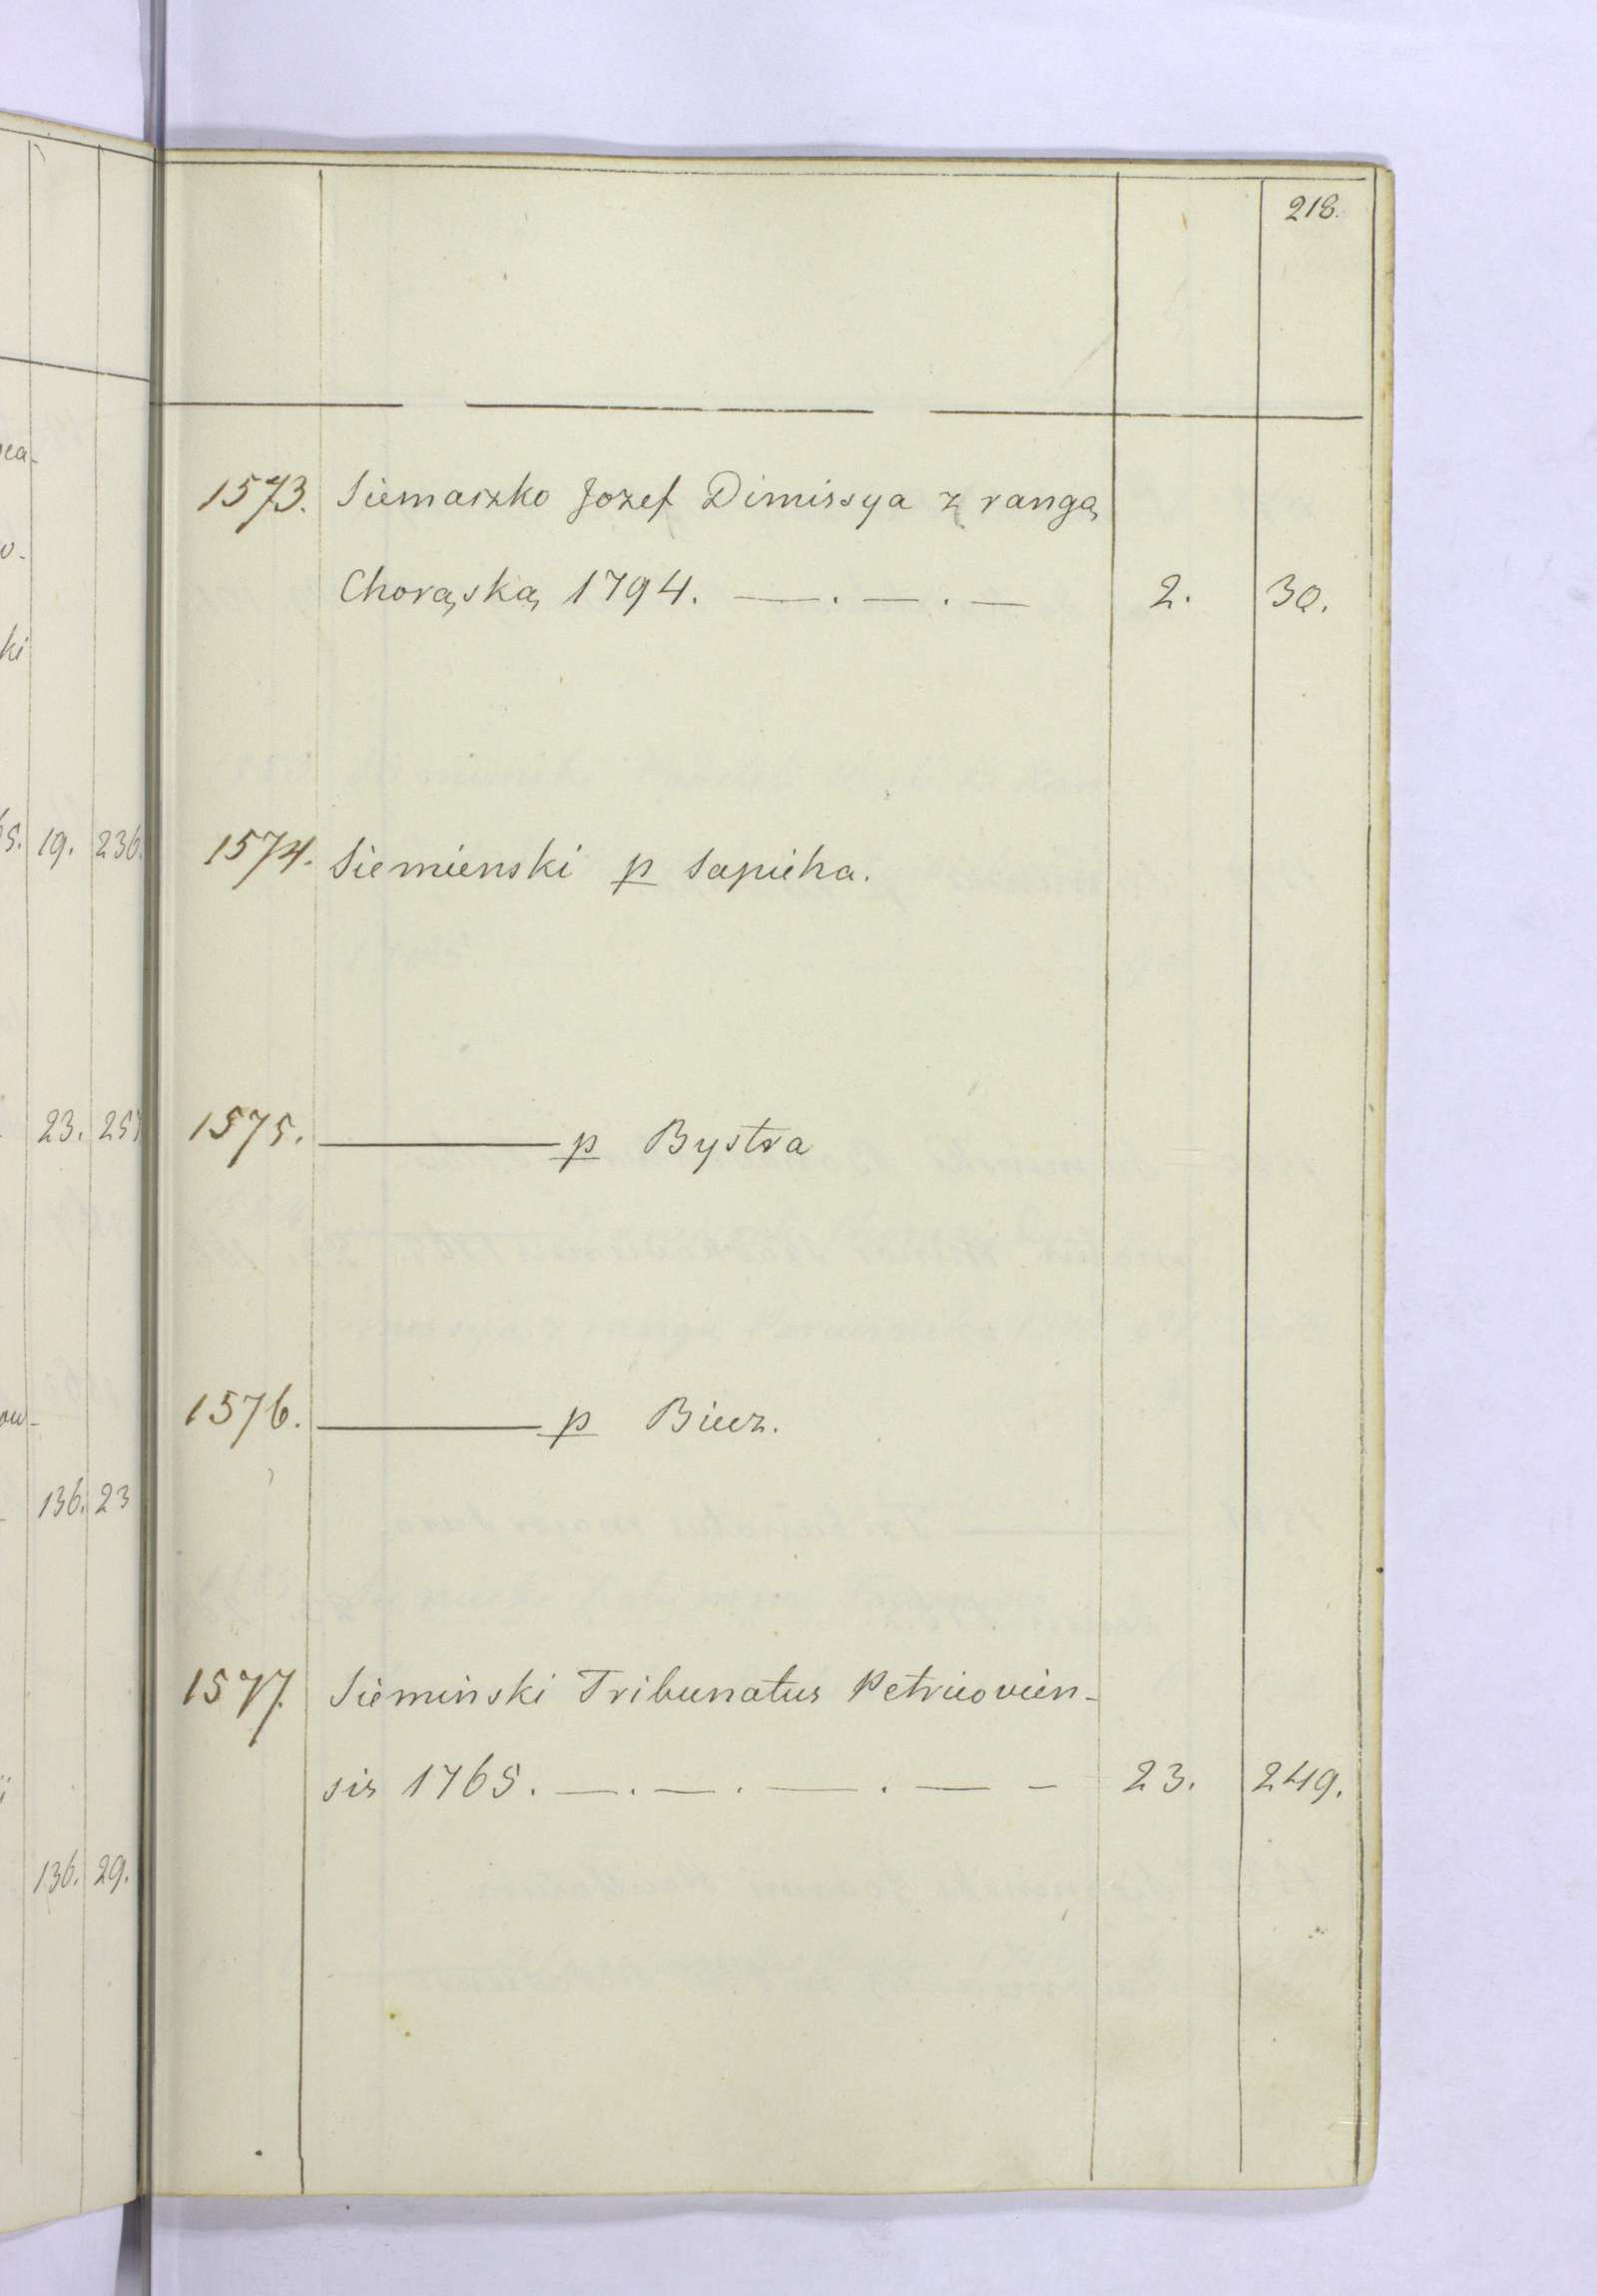 218.
1573. Siemaszko Jozef Dimissya z rangą
Chorąską 1794. —.—.— 2. 30.
1574. Siemienski p Sapieha.
1575. ——— p Bystra
1576. ——— p Biecz.
1577. Siemiński Tribunatus Petricovien-
sis 1765. —.—.—.— – 23. 249.
19. 236.
23.
136. 23
136. 29.